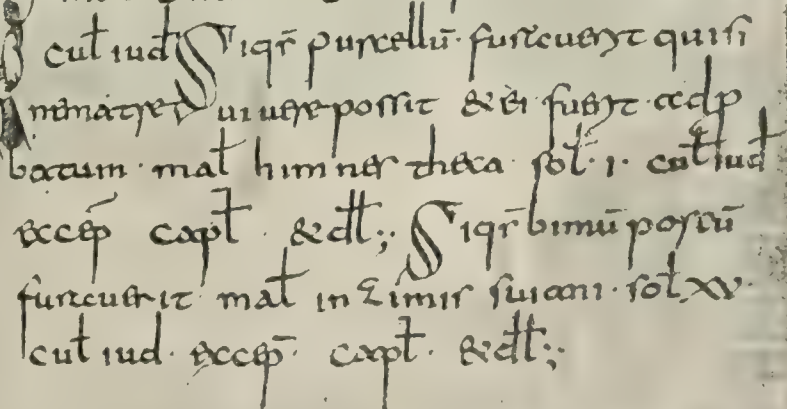 cul̄ iud Siqr̄ purcellū· furtcueryt quisi
nematre uiuere possit & ei fueryt addp
batum· mal̄ himnes theca· sol̄·i· cul̄ iud
eccep̄ capl̄· & dl̄l; Siqr̄ bimū porcū
furtcuerit mal̄ in zimis suiani· sol̄ xv·
cul̄ iud· eccep̄· capl̄· & dl̄l;